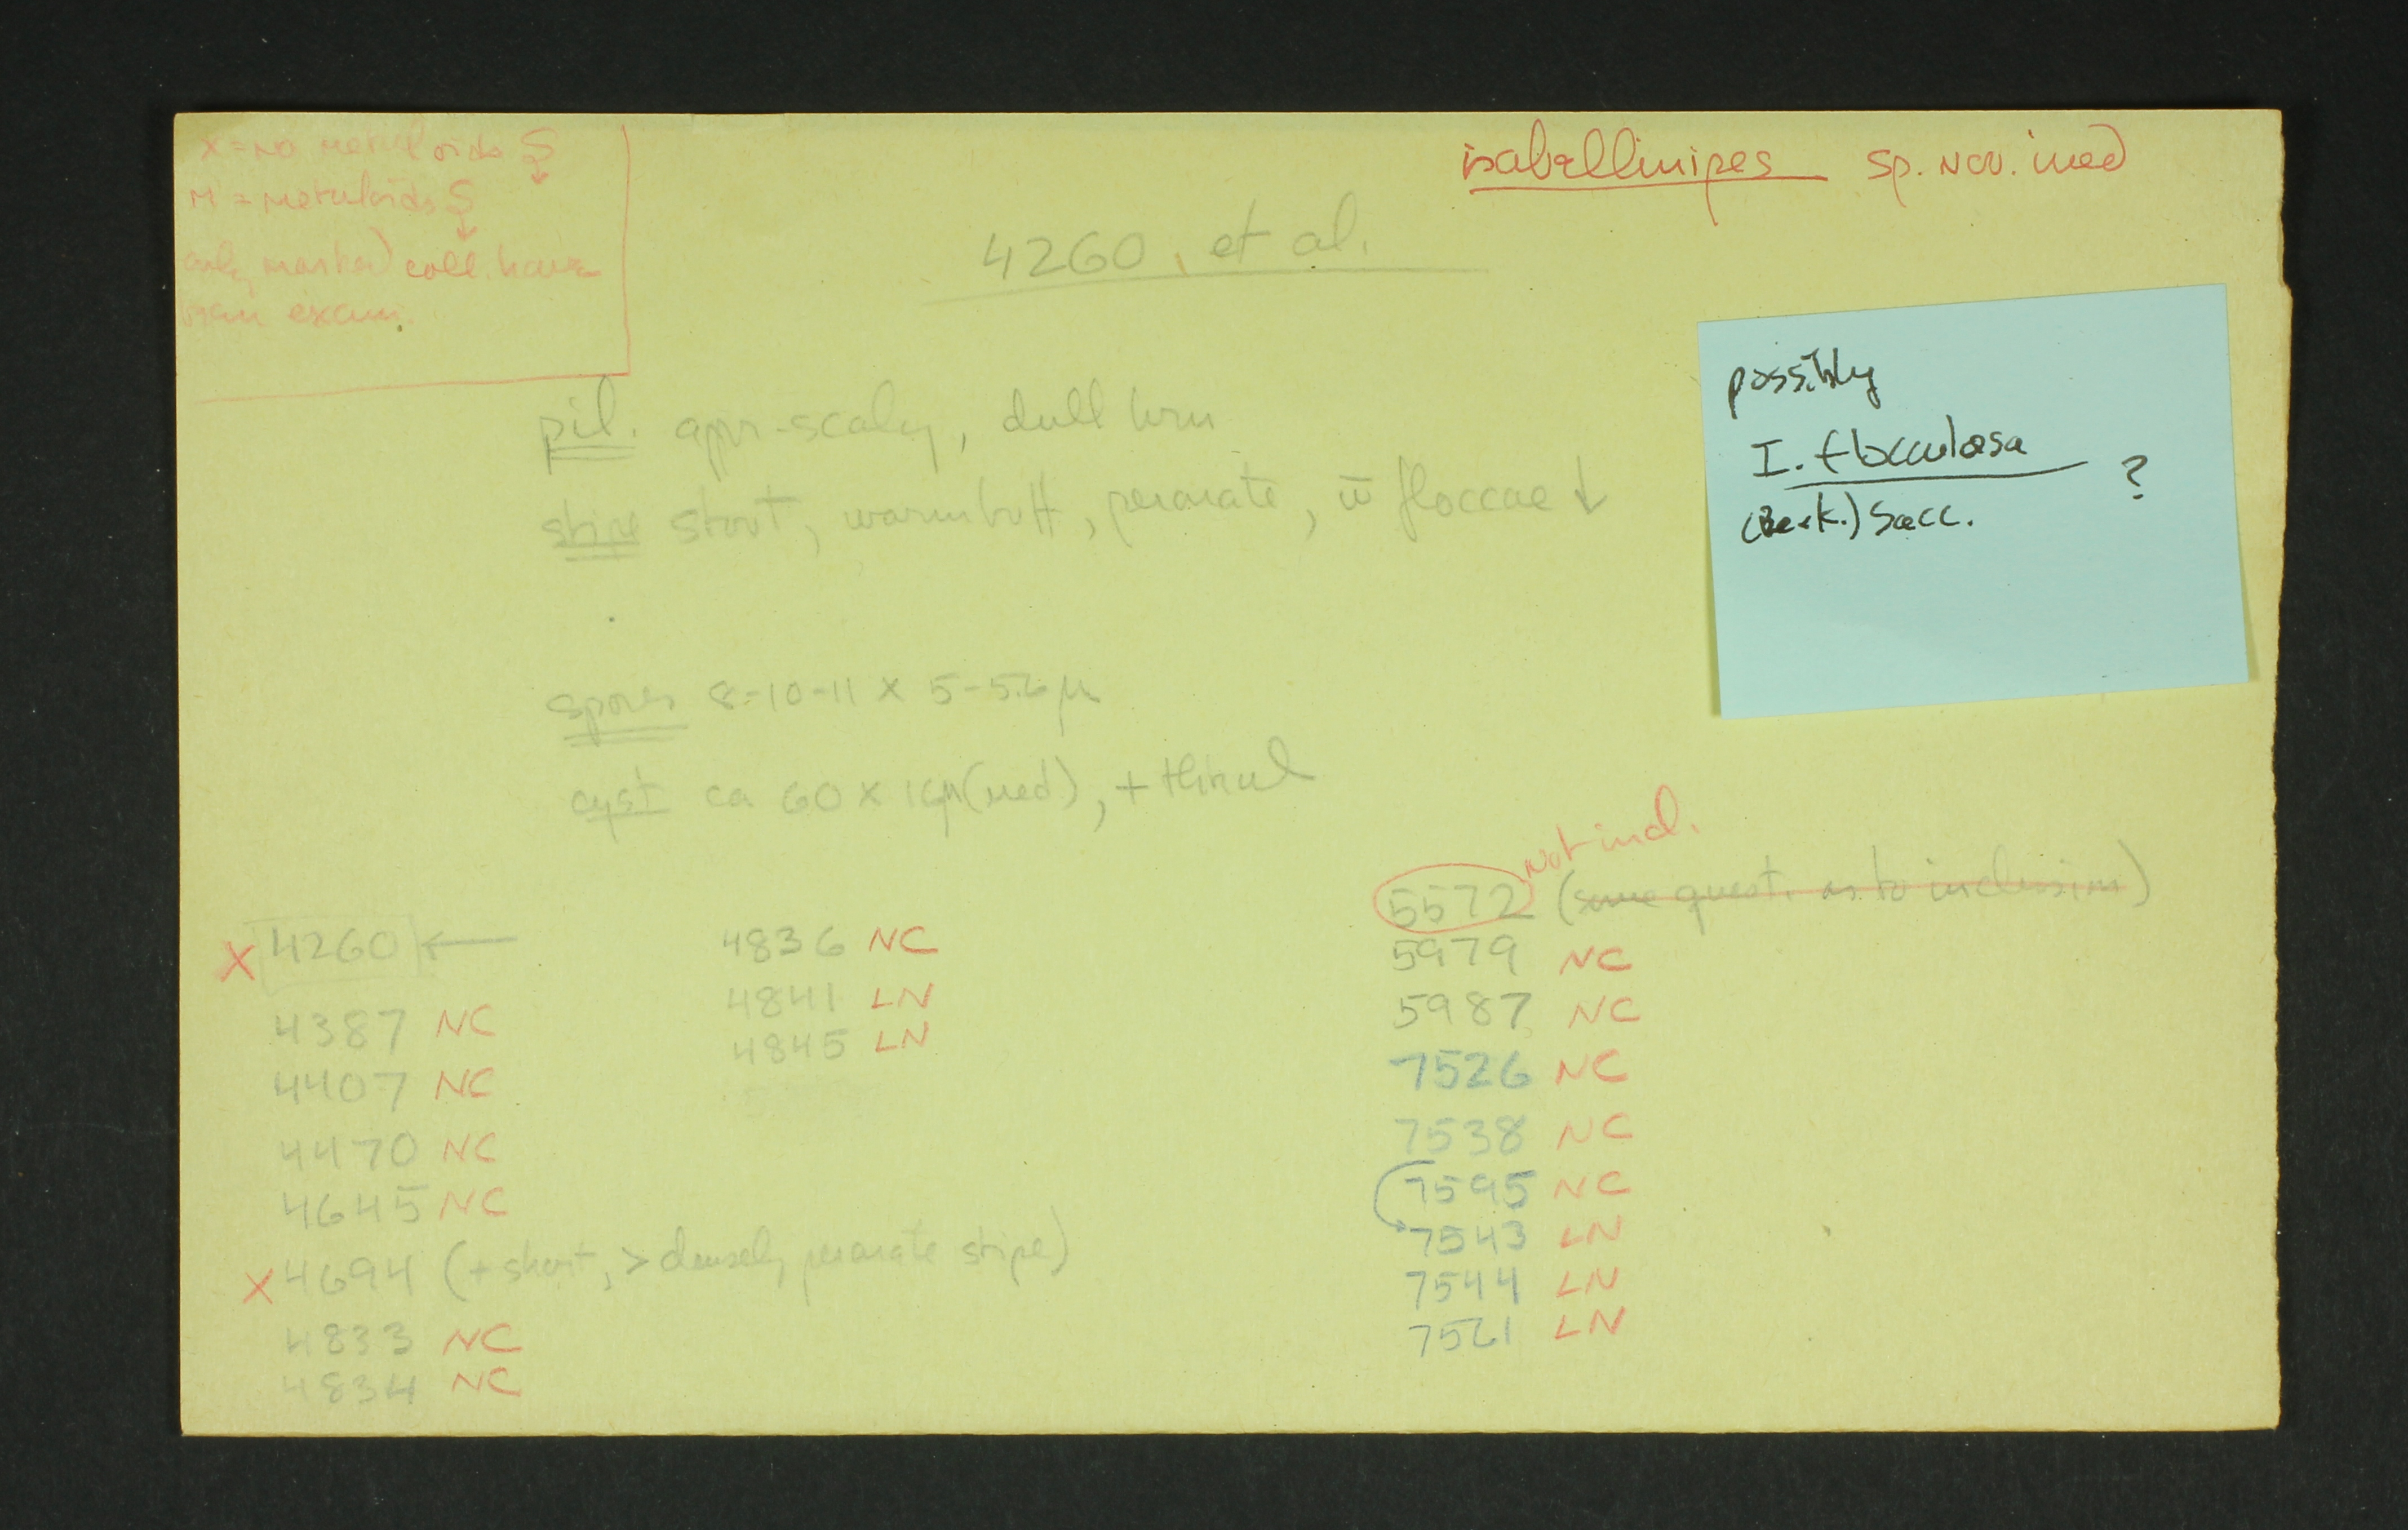 X = no metuloids S
M = metuloids S
only marked coll. have
been exam.
isabellinipes sp. nov. ined
4260, et al.
possibly
I. flocculosa ?
(Berk.) Sacc.
pil. appr-scaly, dull brn
stipe stout, warm buff, peronate, w̄ floccae ↓
spores 8-10-11 x 5-5.6 μ
cyst ca 60 x 16μ (med), + thinwl
X 4260 ←
4387 NC
4407 NC
4470 NC
4645 NC
X 4694 (+ short, > densely peronate stipe)
4833 NC
4834 NC
4836 NC
4841 LN
4845 LN
Not incl.
5572 (some quest. as to inclusion)
5979 NC
5987 NC
7526 NC
7538 NC
7595 NC
7543 LN
7544 LN
7521 LN